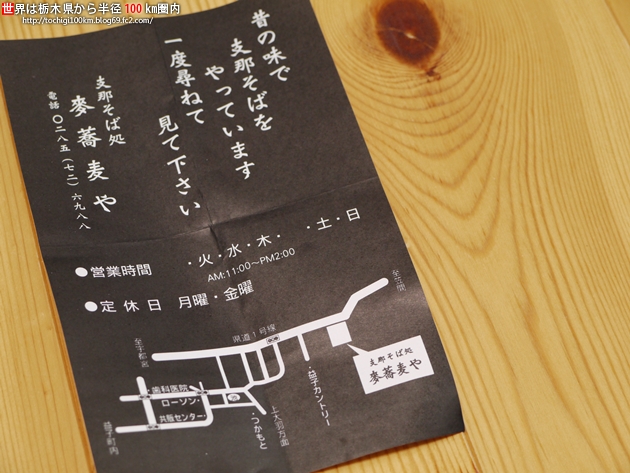 世界は栃木県から半径100km圏内
http://tochigi100km.blog69.fc2.com/
昔の味で
支那そばを
やっています
一度尋ねて
見て下さい
支那そば処
麥蕎麦や
電話 〇二八五(七二)六九八八
●営業時間
・火・水・木・ ・土・日
AM:11:00〜PM2:00
●定休日 月曜・金曜
至笠間
県道1号線
至宇都宮
支那そば処
麥蕎麦や
歯科医院
ローソン
共販センター
益子町内
・つかもと
上大羽方面
・益子カントリー